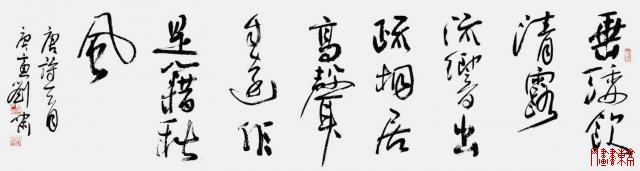 垂緌飲
清露
流響出
疏桐居
高聲
自遠非
是藉秋
風
唐詩
庚寅劉